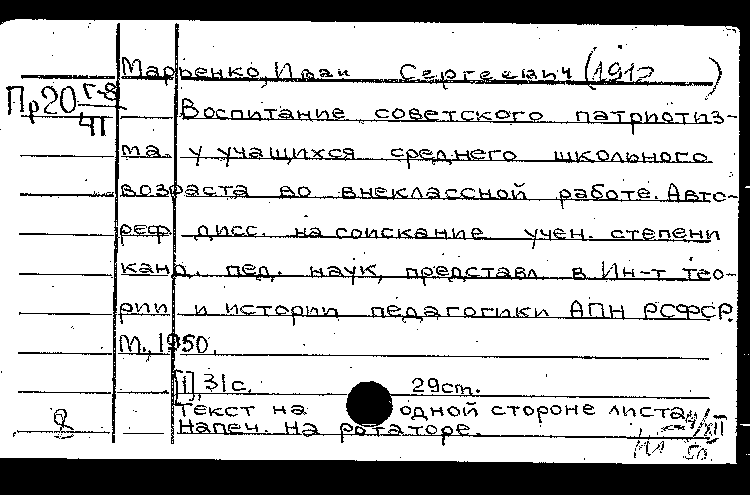 Марьенко, Иван Сергеевич (1912 )
Пр20 Г-8
ЧП
Воспитание советского патриотиз-
ма у учащихся среднего школьного
возраста во внеклассной работе. Авто-
реф дисс. на соискание учен. степени
канд. пед. наук, представл в Ин-т тео-
рии и истории педагогики АПН РСФСР.
М., 1950.
[1], 31 с. 29 cm.
Текст на одной стороне листа.
Напеч. на ротаторе.
8
XII
50.